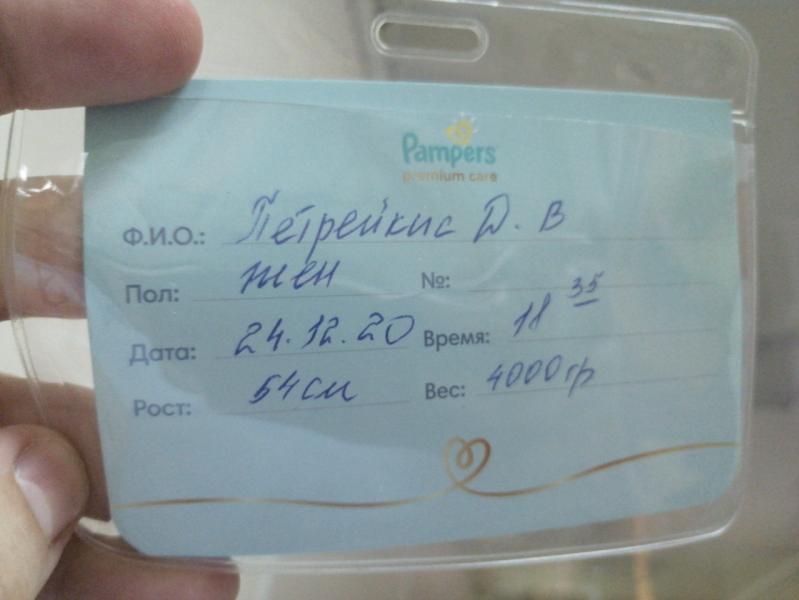 Pampers
premium care
Ф.И.О.: Петрейкис Д. В
Пол: жен №:
Дата: 24.12.20 Время: 18 35
Рост: 54см Вес: 4000гр